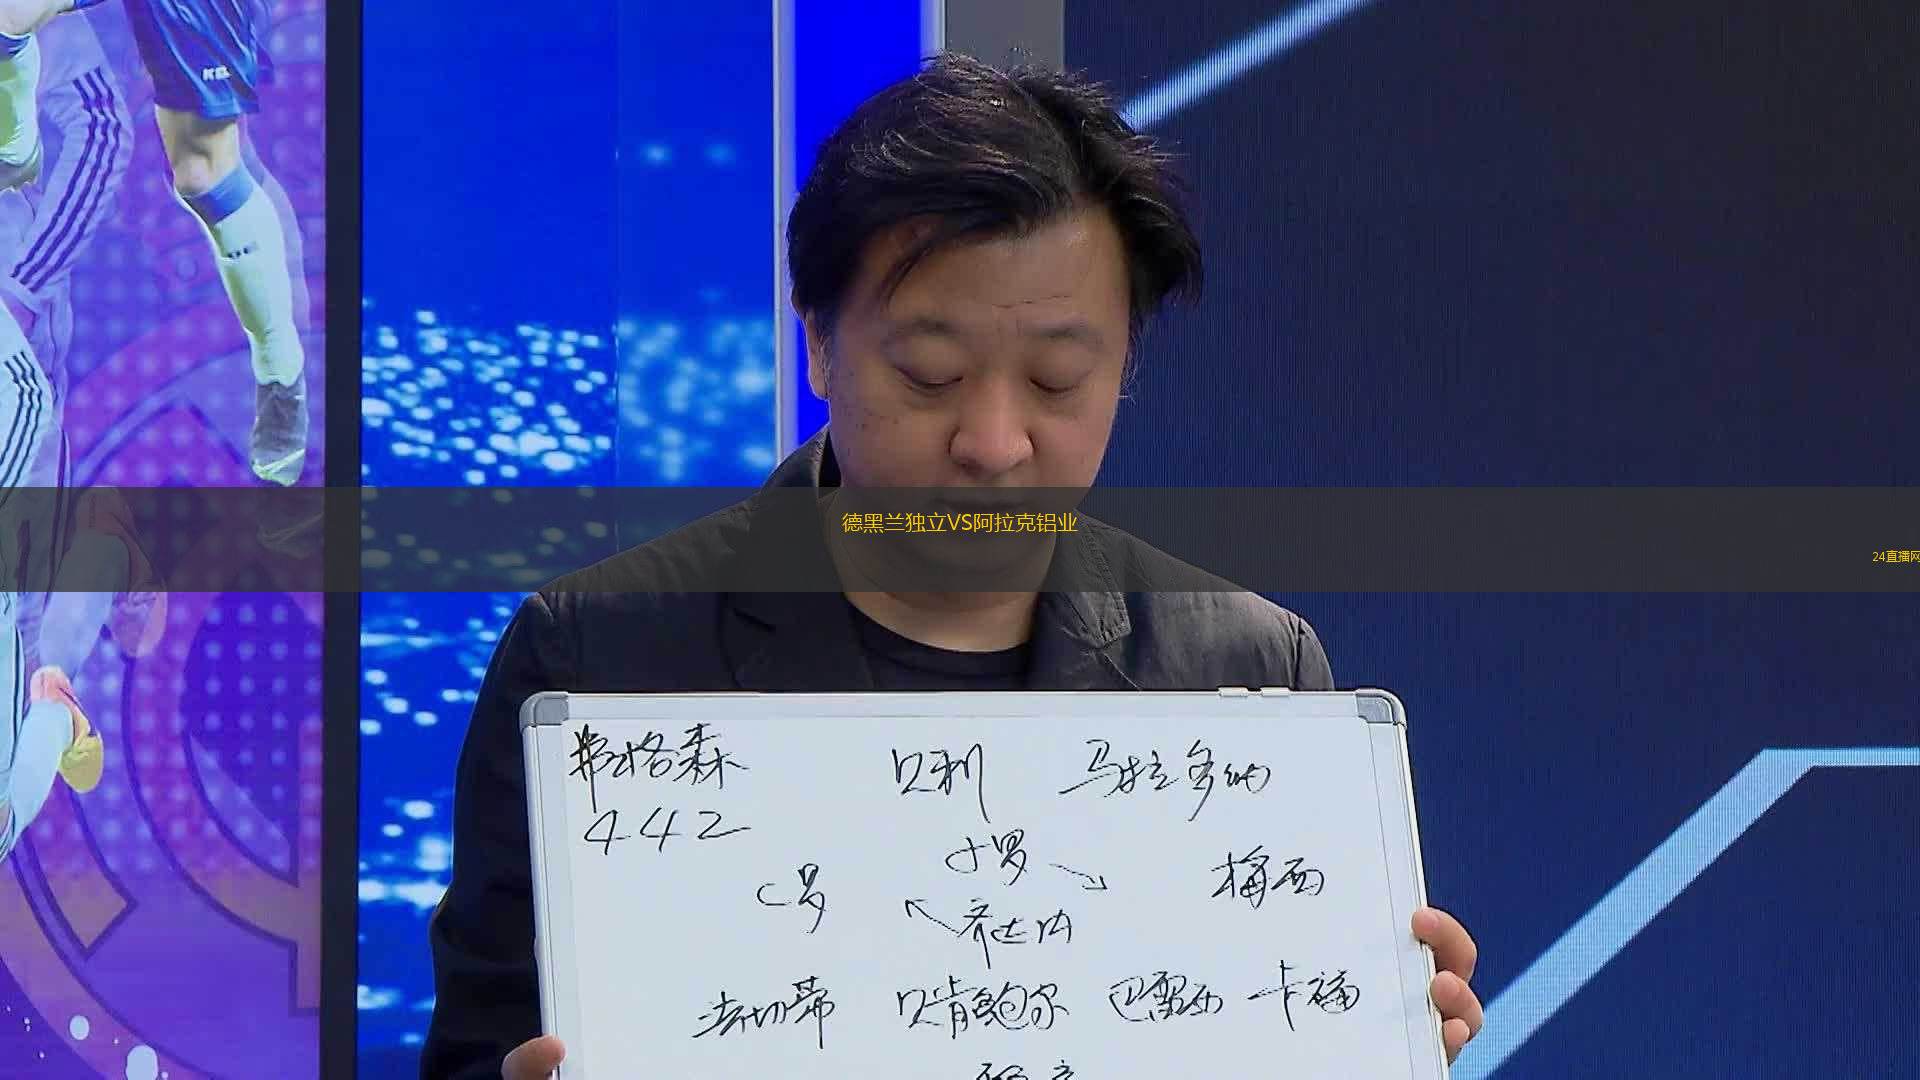 德黑兰独立VS阿拉克铝业
24直播网
弗格森 贝利 马拉多纳
442
小罗
C罗 梅西
齐达内
法切蒂 贝肯鲍尔 巴雷西 卡福